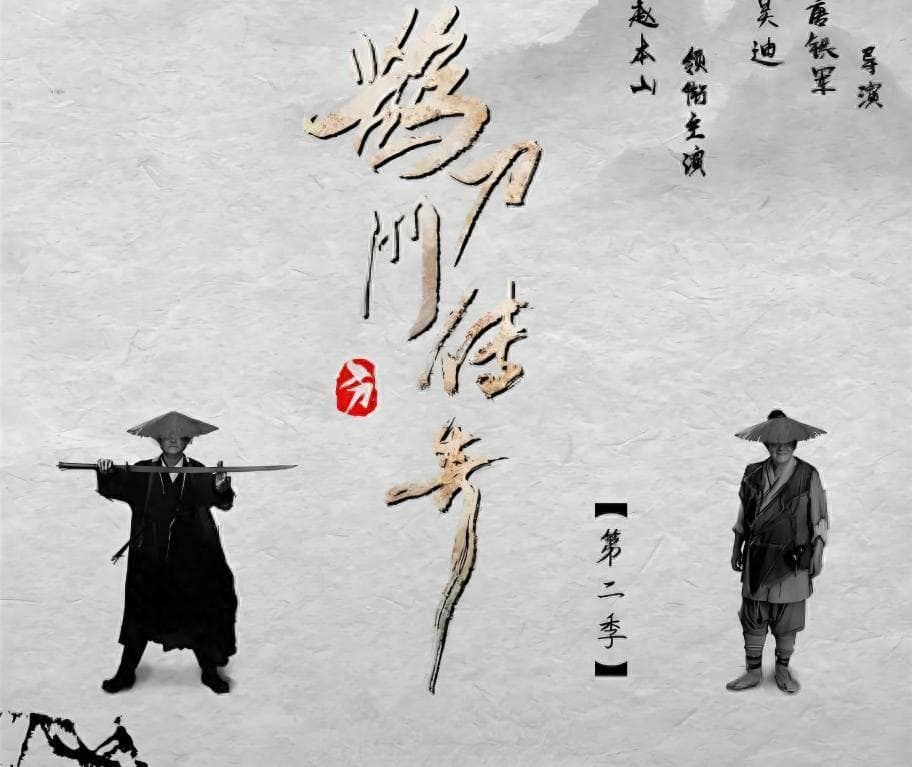 导演
唐铁军
吴迪
领衔主演
赵本山
鹊刀门传奇
【第二季】